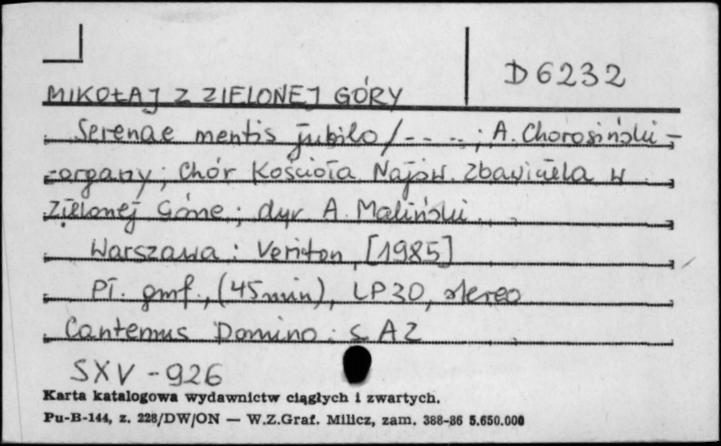 D 6232
MIKOŁAJ Z ZIELONEJ GÓRY
Serenae mentis jubilo / - - - - ; A. Chorosiński -
- organy ; Chór Kościoła Najśw. Zbawiciela w
Zielonej Górze ; dyr. A. Maliński
Warszawa : Veriton, [1985]
Pł. gmf., (45 min), LP 30, stereo
Cantemus Domino : S. A 2
SXV - 926
Karta katalogowa wydawnictw ciągłych i zwartych.
Pu-B-144, z. 228/DW/ON — W.Z.Graf. Milicz, zam. 388-86 5.650.000